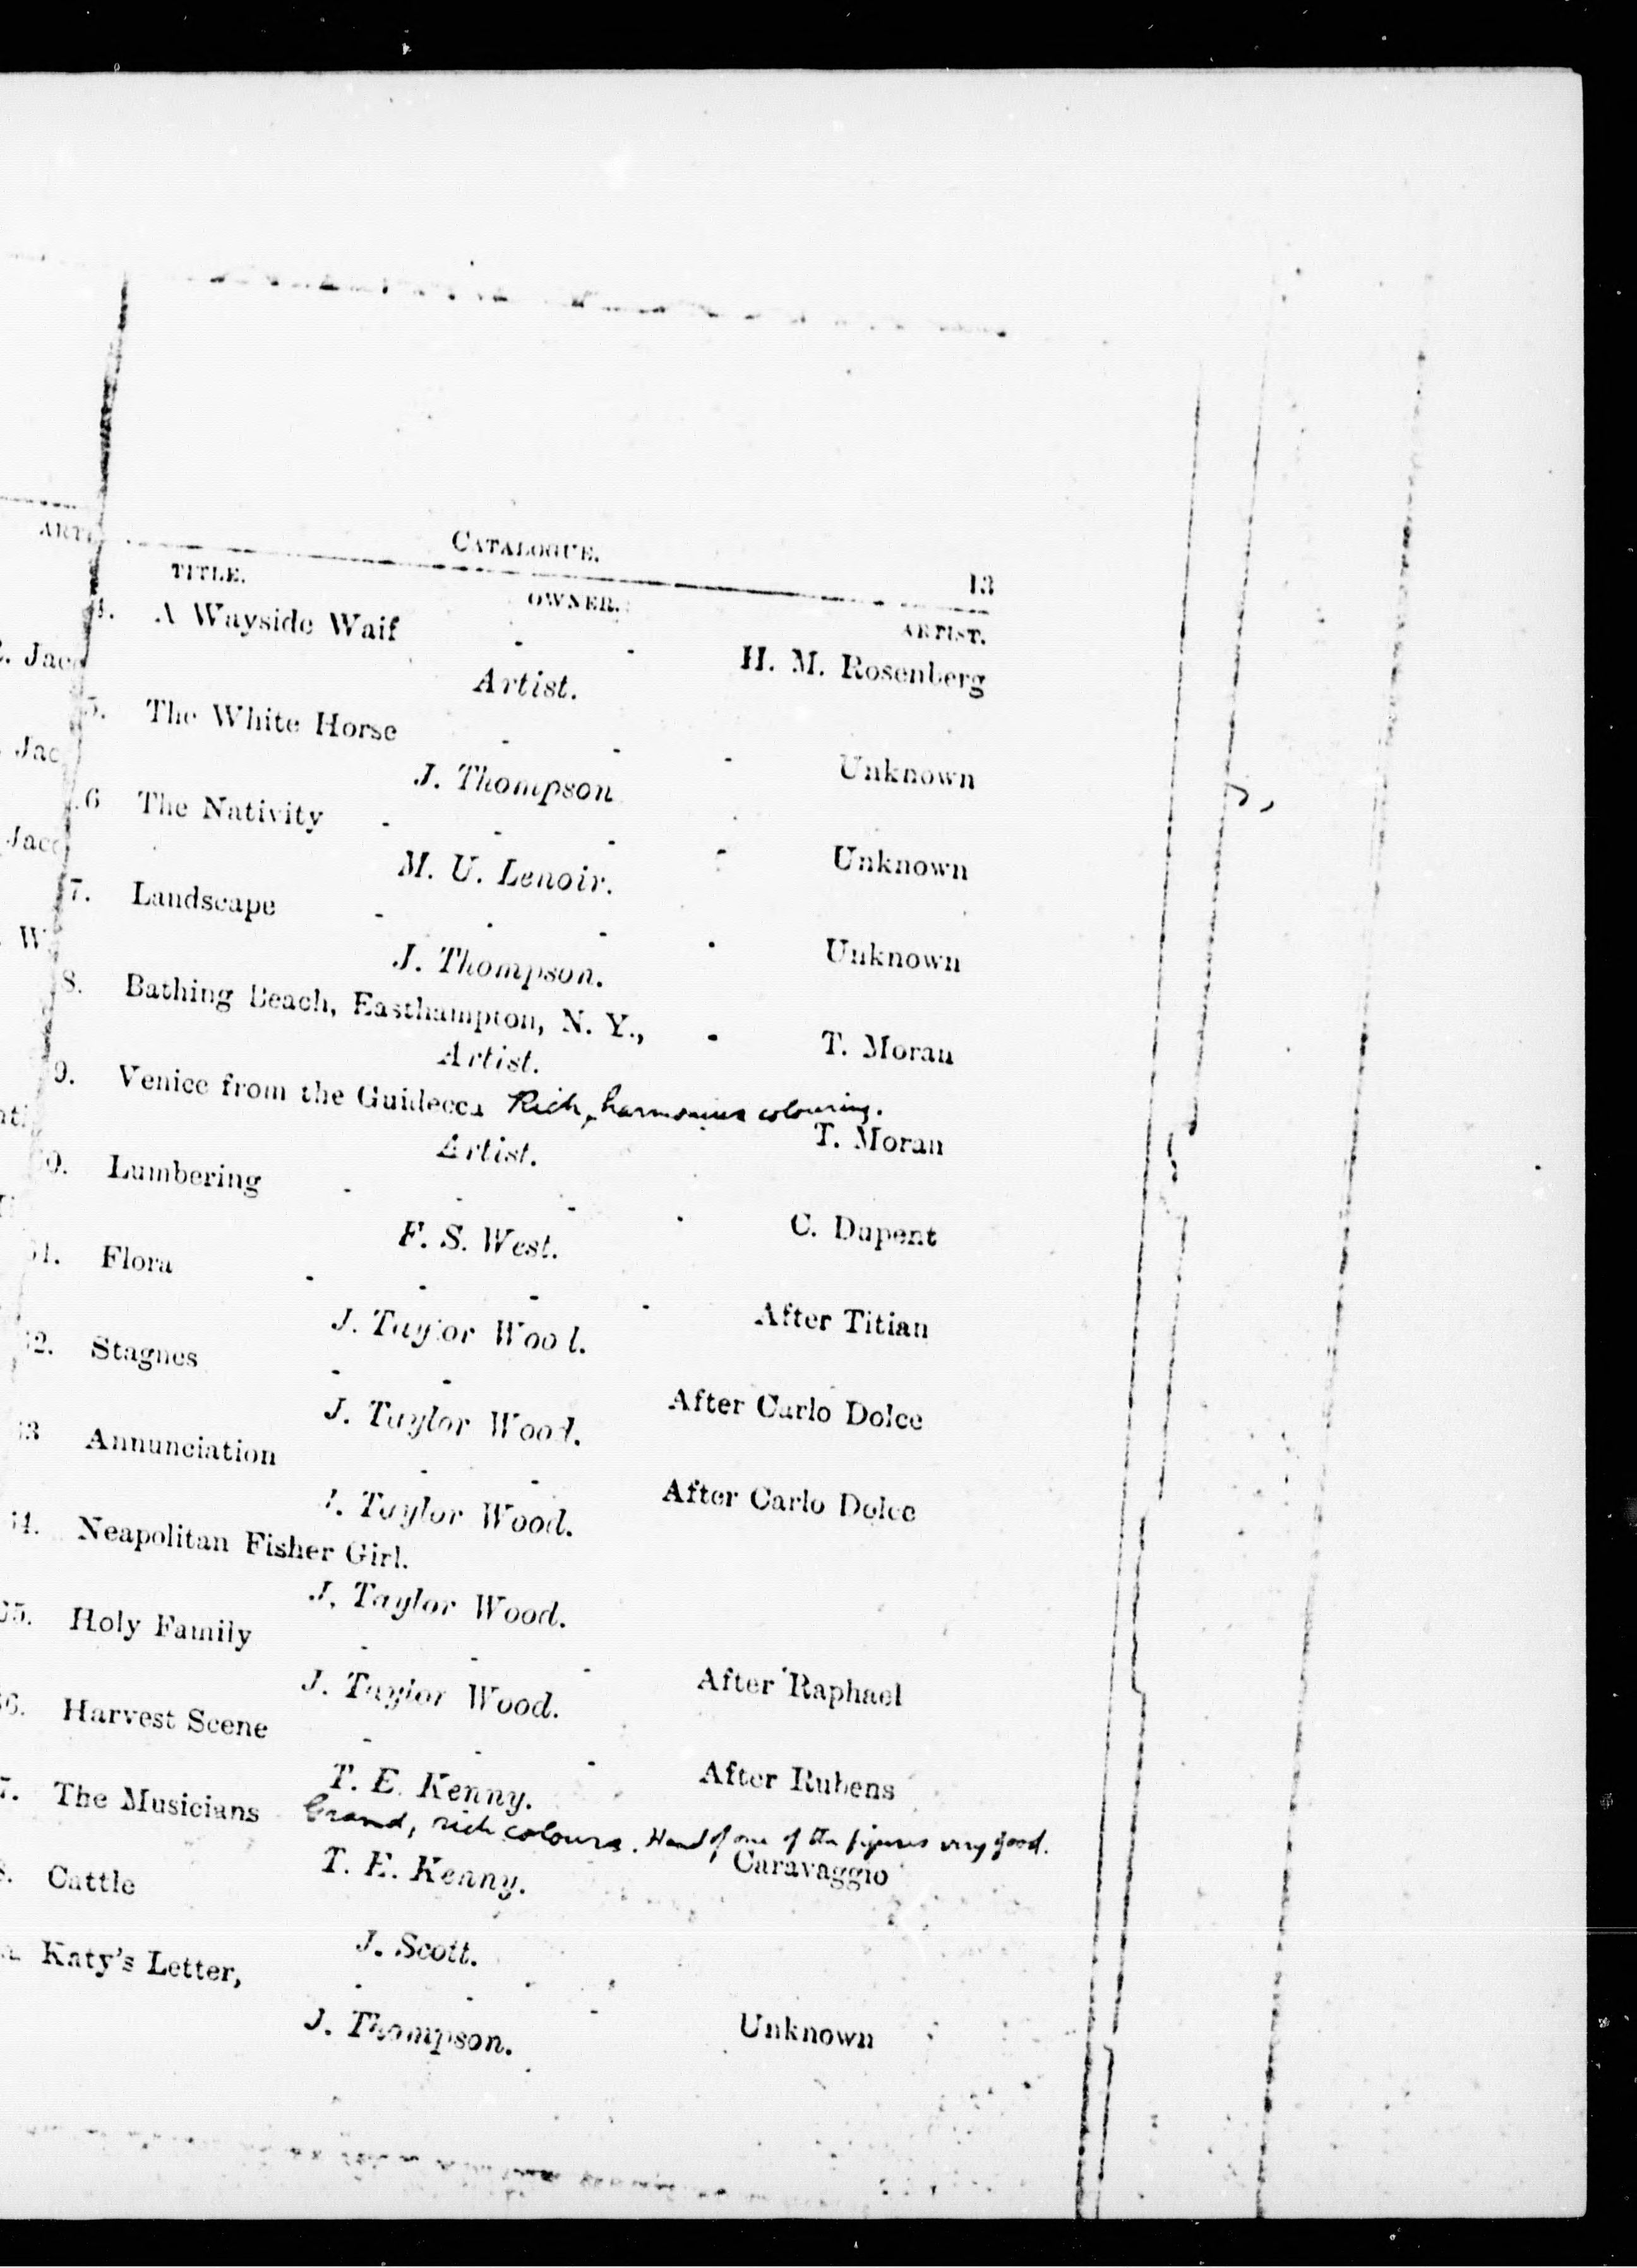 CATALOGUE. 13
TITLE. OWNER. ARTIST.
4. A Wayside Waif - - H. M. Rosenberg
Artist.
5. The White Horse - - - Unknown
J. Thompson
6 The Nativity - - - - Unknown
M. U. Lenoir.
7. Landscape - - - - Unknown
J. Thompson.
8. Bathing Beach, Easthampton, N. Y., - T. Moran
Artist.
9. Venice from the Guidecca Rich, harmonious colouring. T. Moran
Artist.
0. Lumbering - - - - C. Dupent
F. S. West.
1. Flora - - - - After Titian
J. Taylor Wood.
2. Stagnes - - After Carlo Dolce
J. Taylor Wood.
3 Annunciation - - After Carlo Dolce
J. Taylor Wood.
4. Neapolitan Fisher Girl.
J. Taylor Wood.
5. Holy Family - - - After Raphael
J. Taylor Wood.
6. Harvest Scene - - - After Rubens
T. E. Kenny.
7. The Musicians Grand, rich colours. Hand of one of the figures very good. Caravaggio
T. E. Kenny.
8. Cattle
J. Scott.
Katy's Letter, - - - Unknown
J. Thompson.